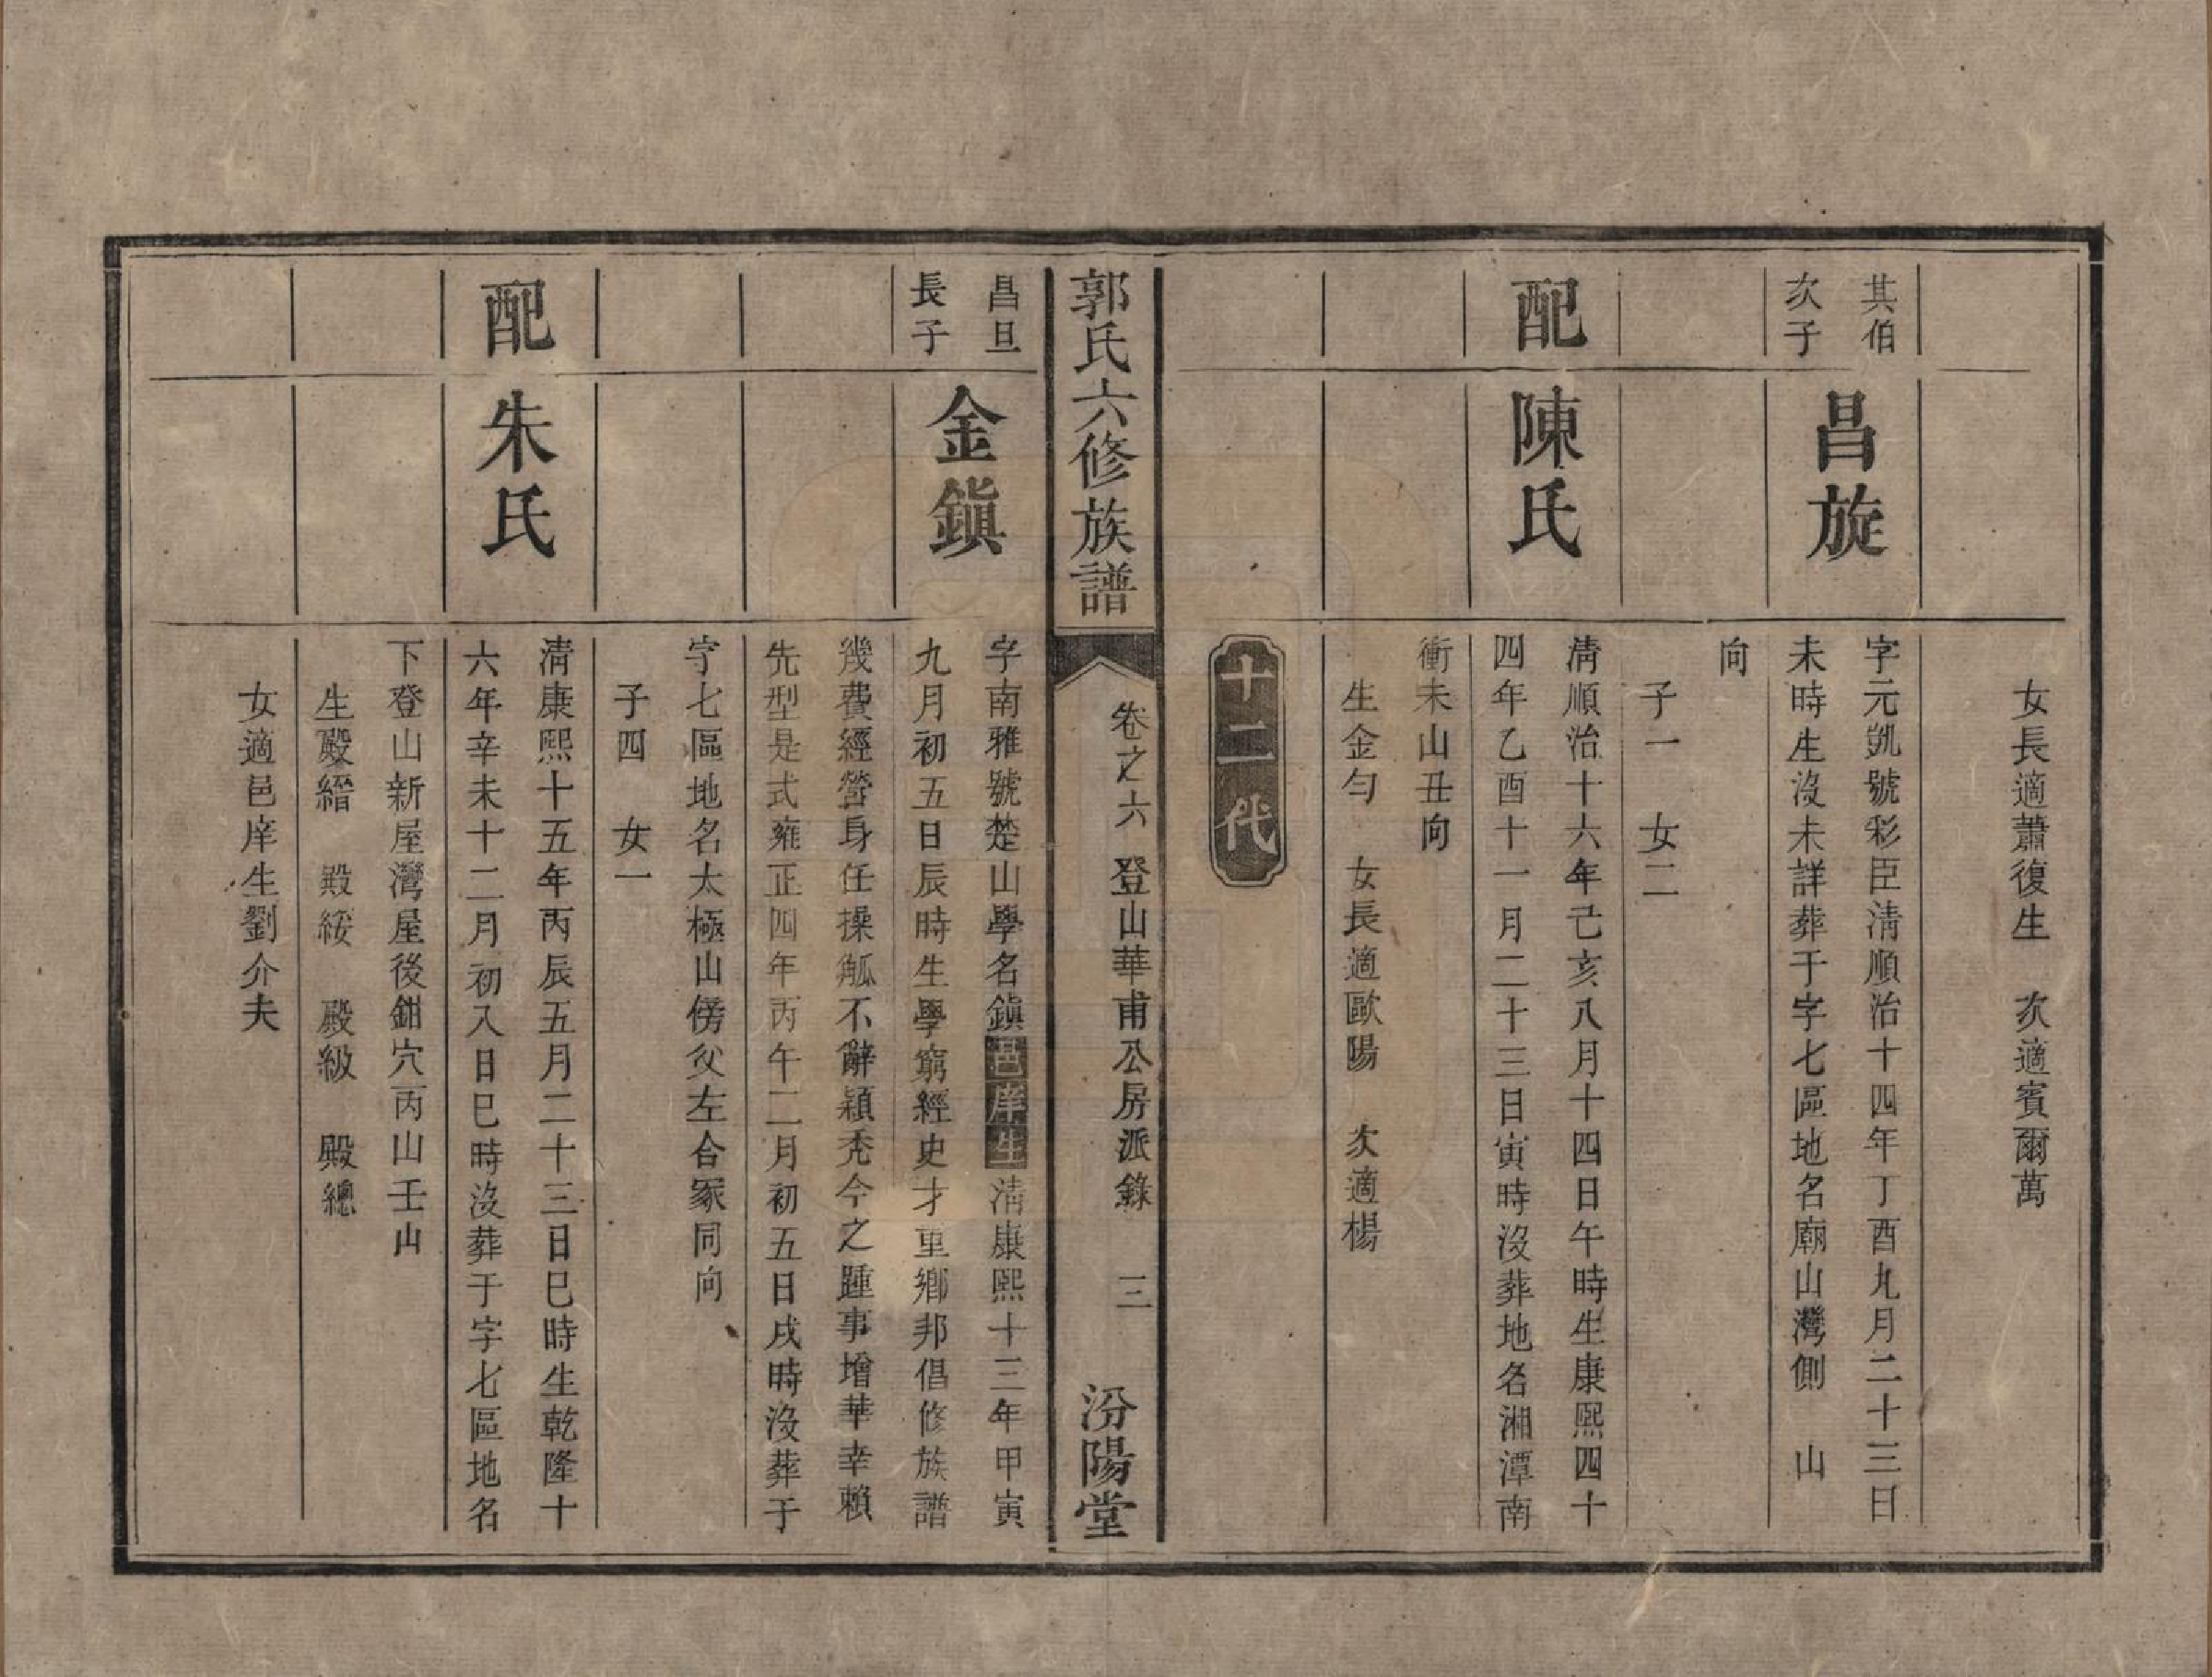 女長適蕭復生　次適賓爾萬
其伯
次子
昌旋
字元凱號彩臣清順治十四年丁酉九月二十三日
未時生沒未詳葬于字七區地名廟山灣側　山
向
子一　女二
配
陳氏
清順治十六年己亥八月十四日午時生康熙四十
四年乙酉十一月二十三日寅時沒葬地名湘潭南
衝未山丑向
生金勻　女長適歐陽　次適楊
十二代
郭氏六修族譜
卷之六　登山華甫公房派錄　三
汾陽堂
昌旦
長子
金鎮
字南雅號楚山學名鎮邑庠生清康熙十三年甲寅
九月初五日辰時生學窮經史才重鄉邦倡修族譜
幾費經營身任操觚不辭穎禿今之踵事增華幸賴
先型是式雍正四年丙午二月初五日戌時沒葬于
字七區地名太極山傍父左合冢同向
子四　女一
配
朱氏
清康熙十五年丙辰五月二十三日巳時生乾隆十
六年辛未十二月初入日巳時沒葬于字七區地名
下登山新屋灣屋後鉗穴丙山壬山
生殿縉　殿綏　殿級　殿總
女適邑庠生劉介夫